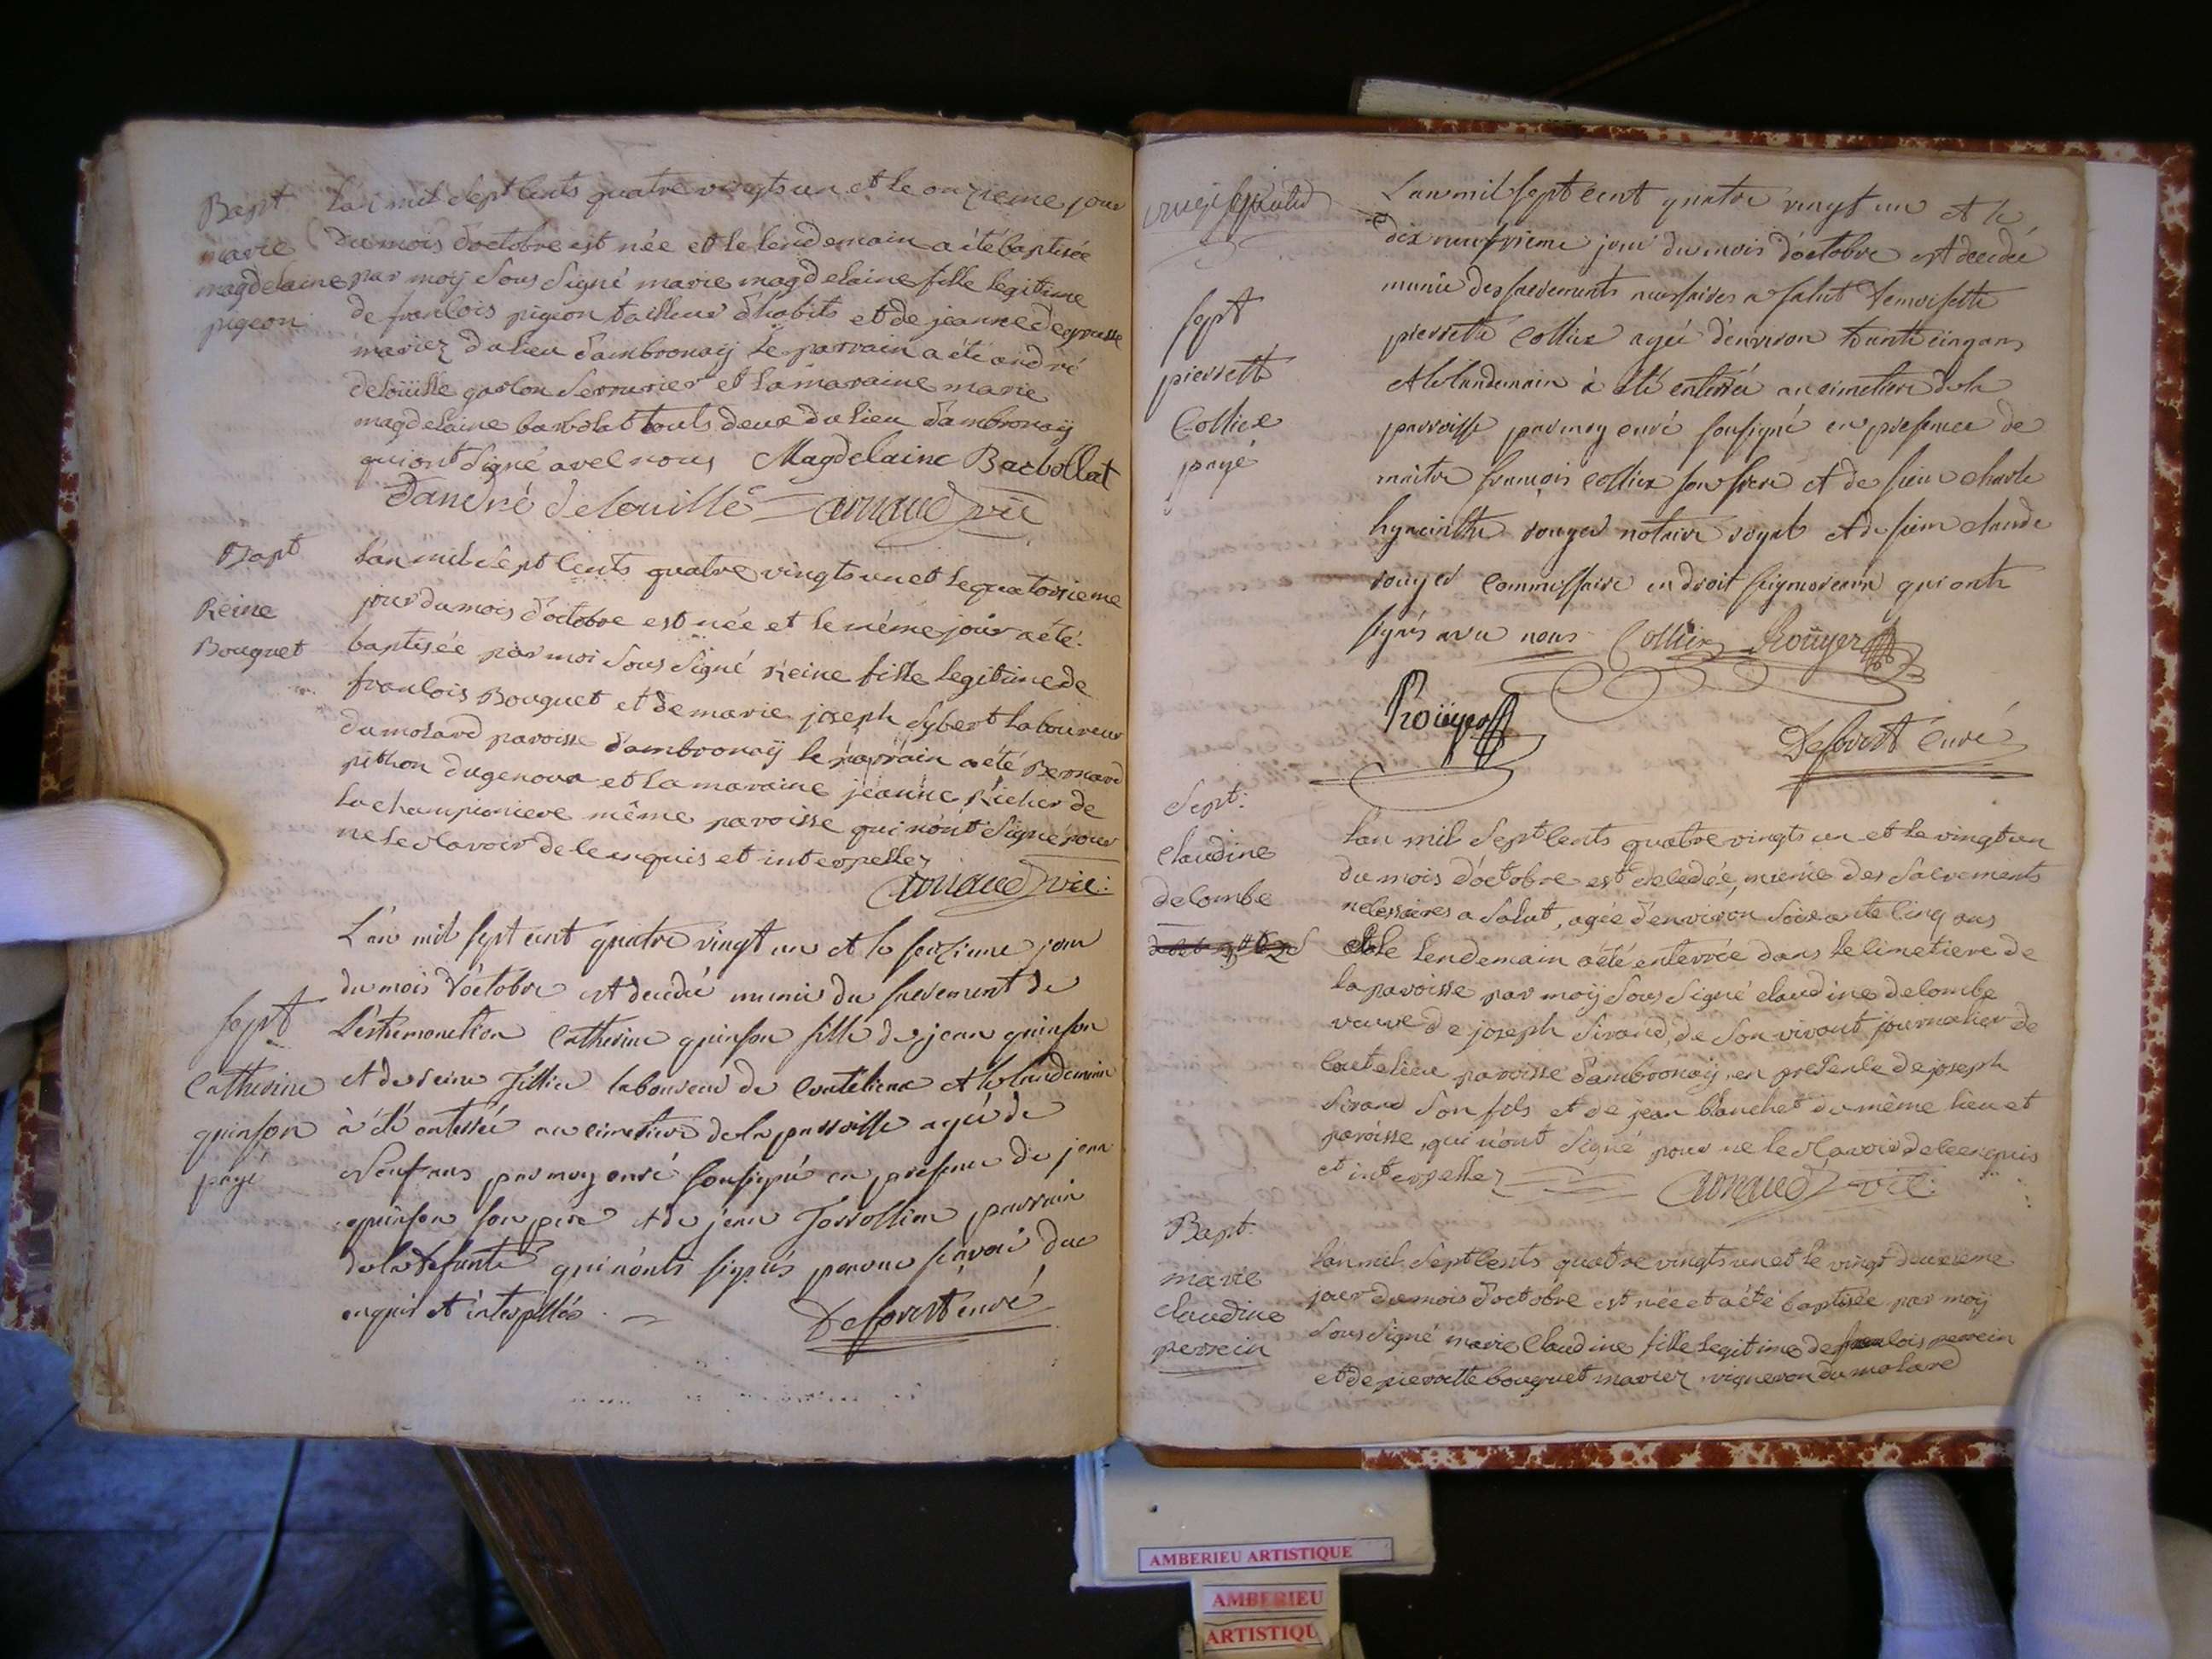 Bapt
marie
magdelaine
pigeon
L'an mil sept cents quatre vingts un et le onzieme jour
du mois d'octobre est née et le lendemain a été baptisée
par moÿ sous signé marie magdelaine fille legitime
de francois pigeon tailleur d'habits et de jeanne degrusse
mariez du lieu d'ambronaÿ le parrain a été andré
delouille garcon serrurier et la maraine marie
magdelaine barbolat touts deux du lieu d'ambronaÿ
qui ont signé avec nous Magdelaine Barbollat
D'andré delouille arnaud vic
Bapt
Reine
Bouquet
L'an mil sept cents quatre vingts un et le quatorzieme
jour du mois d'octobre est née et le même jour a été
baptisée par moi sous signé Reine fille legitime de
francois Bouquet et de marie joseph sybert laboureur
du molard paroisse d'ambronaÿ le parrain a été Bernard
pithon du genoua et la maraine jeanne Richer de
la championiere même paroisse qui n'ont signé pour
ne le scavoir de ce enquis et interpellez
arnaud vic:
sept
Catherine
quinson
payé
L'an mil sept cent quatre vingt un et le seizieme jour
du mois d'octobre est decedée munie du sacrement de
L'extremonction Catherine quinson fille de jean quinson
et de reine Tillier laboureur de Coutelieux et le landemain
à été enterrée au cimetiere de la parroisse agée de
neuf ans par moy curé soussigné en presence de jean
quinson son pere et de jean parrain
de la defunte qui n'onts signés pour ne sçavoir de ce
enquis et interpellés
Deforest curé
sept
pierrette
Colliex
payé
L'an mil sept cent quatre vingt un et le
dix neuf vieme jour du mois d'octobre est decedée
munie des sacrements necessaires a salut demoiselle
pierrette Colliex agée d'environ trante cinq ans
et le landemain à été enterrée au cimetiere de la
parroisse par moy curé sousigné en presence de
maitre françois Colliex son frere et de sieur charle
hyacinthe rouyer notaire royal et de sieur claude
rouyer Commissaire en droit seigneuriaux qui onts
signés avec nous Colliex Roüyer
Roüyer
Deforest Curé
Sept:
claudine
delombe
L'an mil sept cents quatre vingts un et le vingt un
du mois d'octobre est decedée, munie des sacrements
necessaires a salut, agée d'environ soixante cinq ans
et le lendemain a été enterrée dans le cimetiere de
la paroisse par moÿ sous signé claudine delombe
veuve de joseph sirand, de son vivant journalier de
coutelieu paroisse d'ambronaÿ, en presence de joseph
sirand son fils et de jean blanchet du même lieu et
paroisse, qui n'ont signé pour ne le scavoir de ce enquis
et interpellez arnaud vic:
Bapt:
marie
claudine
perrein
L'an mil sept cents quatre vingts un et le vingt deuxieme
jour du mois d'octobre est née et a été baptisée par moÿ
sous signé marie Claudine fille legitime de francois perrein
et de pierrette bouquet mariez vigneron du molard
AMBERIEU ARTISTIQUE
AMBERIEU
ARTISTIQU